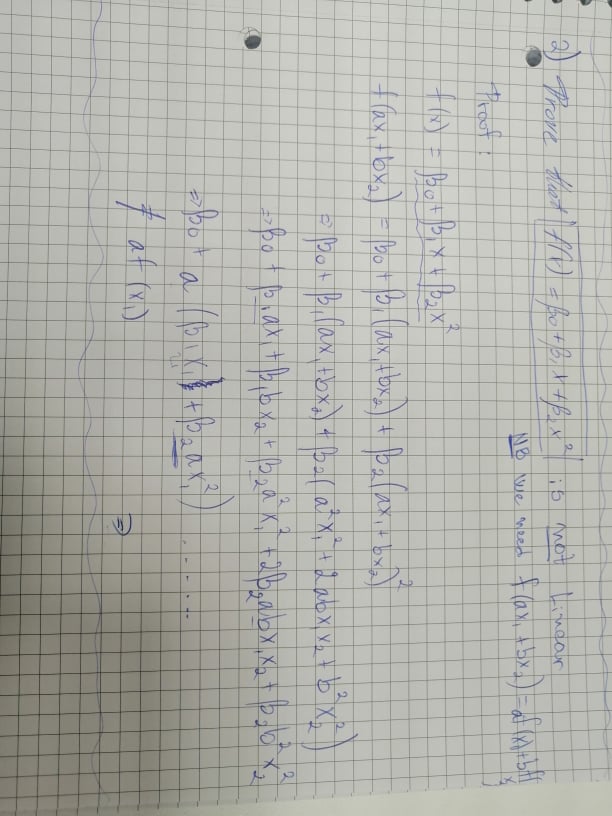 2) Prove that f(x) = β₀ + β₁x + β₂x² is not Linear
NB we need f(ax₁ + bx₂) = af(x₁) + bf(x₂)
Proof:
f(x) = β₀ + β₁x + β₂x²
f(ax₁ + bx₂) = β₀ + β₁(ax₁ + bx₂) + β₂(ax₁ + bx₂)²
⇒ β₀ + β₁(ax₁ + bx₂) + β₂(a²x₁² + 2abx₁x₂ + b²x₂²)
⇒ β₀ + β₁ax₁ + β₁bx₂ + β₂a²x₁² + 2β₂abx₁x₂ + β₂b²x₂²
⇒ β₀ + a(β₁x₁ + β₂ax₁²) ......
≠ af(x₁) ⇒